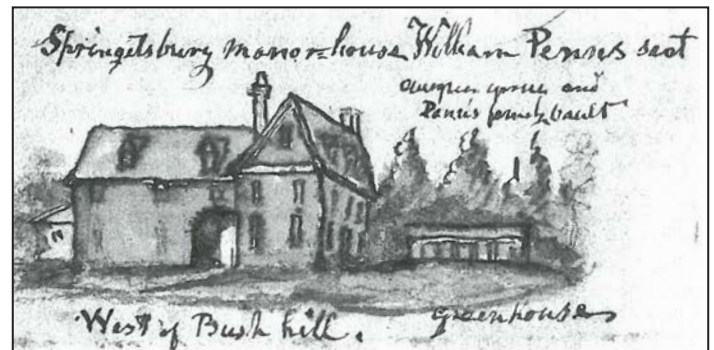 Springetsbury manor=house William Penns seat
evergreen grove and
Penn's family vault
West of Bush hill.
greenhouse